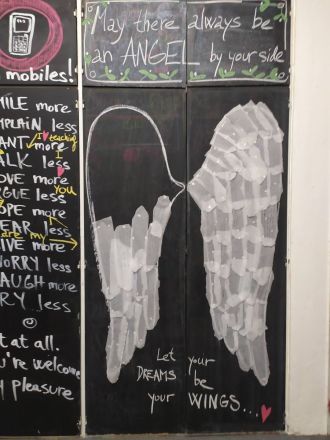 May there always be
an ANGEL by your side
mobiles!
MILE more
MPLAIN less
ANT more
I teaching
ALK less
I
OVE more
you
GUE less
OPE more
EAR less
are my
IVE more
ORRY less
AUGH more
RY less
t at all.
u're welcome
y pleasure
Let your
DREAMS be
your WINGS...